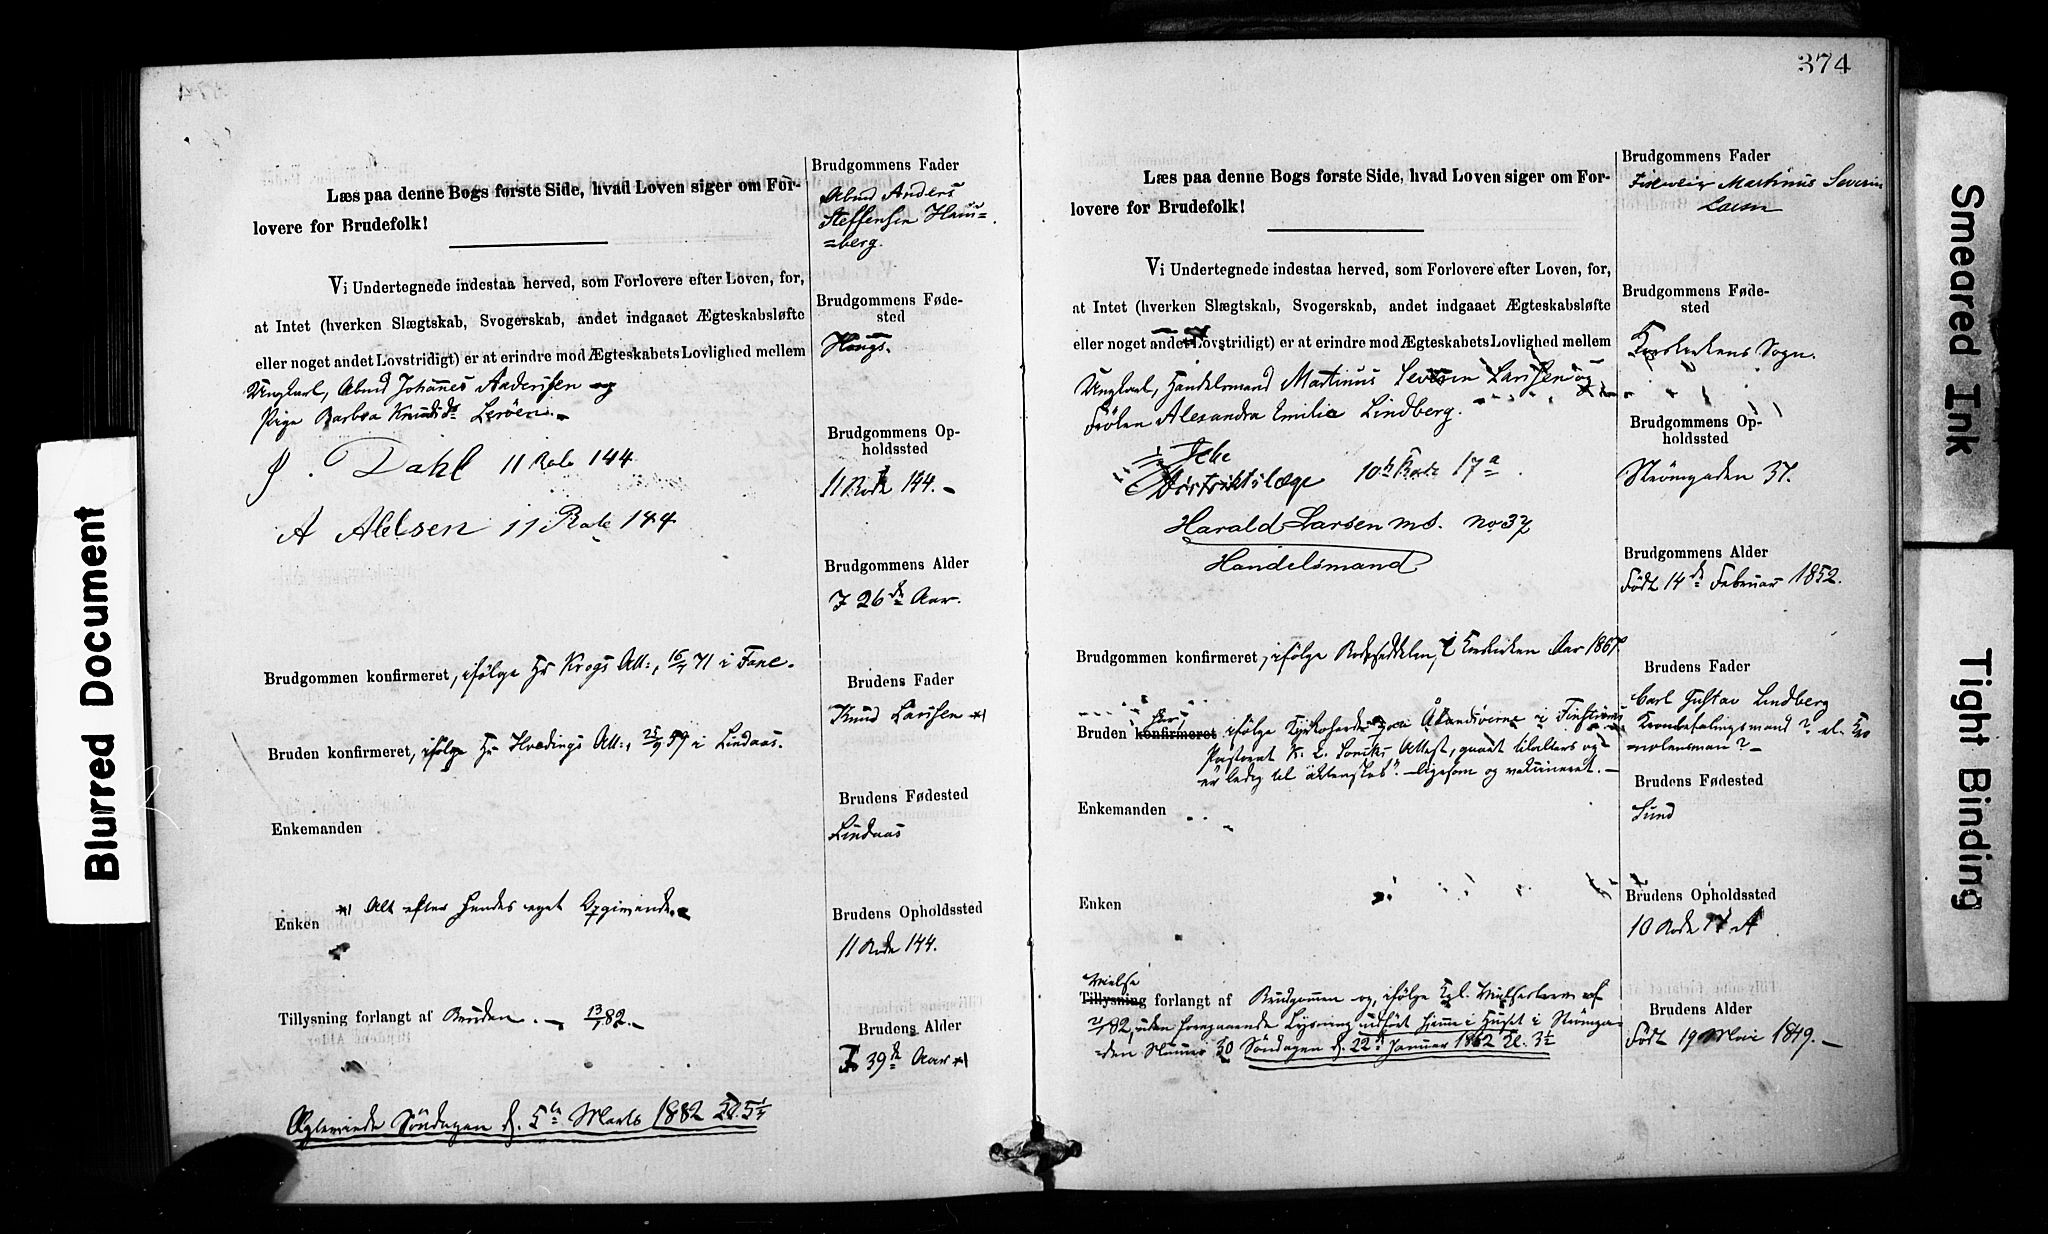 374
Blurred Document
Læs paa denne Bogs første Side, hvad Loven siger om For-
lovere for Brudefolk!
Vi Undertegnede indestaa herved, som Forlovere efter Loven, for,
at Intet (hverken Slægtskab, Svogerskab, andet indgaaet Ægteskabsløfte
eller noget andet Lovstridigt) er at erindre mod Ægteskabets Lovlighed mellem
Ungkarl, Johannes Anderssen og
Pige Barbra Knudsdr Lerøen. -
J. Dahl 11 Rode 144
A Abelsen 11 Rode 144
Brudgommen konfirmeret, ifølge Hr Krogs Att:, 16/4 71 i Fane.
Bruden konfirmeret, ifølge Hr Hvedings Att:, 25/9 59 i Lindaas.
Enkemanden
Enken *) Alt efter hendes eget Opgivende.
Tillysning forlangt af Bruden. - 13/1 82. -
Søndagen d. 5te Marts 1882 Kl. 5 1/4
Brudgommens Fader
Anders
Steffensen Haus-
=berg.
Brudgommens Føde-
sted
Haugs.
Brudgommens Op-
holdssted
11 Rode 144. -
Brudgommens Alder
I 26de Aar.
Brudens Fader
Knud Larssen *)
Brudens Fødested
Lindaas
Brudens Opholdssted
11 Rode 144.
Brudens Alder
I 39de Aar *)
Læs paa denne Bogs første Side, hvad Loven siger om For-
lovere for Brudefolk!
Vi Undertegnede indestaa herved, som Forlovere efter Loven, for,
at Intet (hverken Slægtskab, Svogerskab, andet indgaaet Ægteskabsløfte
eller noget andet Lovstridigt) er at erindre mod Ægteskabets Lovlighed mellem
Ungkarl, Handelsmand Martinus Severin Larssen og
Frøken Alexandra Emilie Lindberg.
Distriktslæge 10de Rode 17a
Harald Larsen no 37
Handelsmand
Brudgommen konfirmeret, ifølge Rodeseddelen, i Korskirken Aar 1867
Bruden konfirmeret ifølge Kyrkoherde i
Pastorat K. L. Attest,
er ledig til äktenskap". ligesom og vakcineret. -
Enkemanden
Enken
Vielse
Tillysning forlangt af Brudgommen og ifølge Kgl. af
/82, uden foregaaende Lysning udført hjemme i Huset i Strømga-
=den Nummer 30 Søndagen d. 22d Januar 1882 Kl. 3 1/2
Brudgommens Fader
Martinus Severin
Larsen
Brudgommens Føde-
sted
Korskirkens Sogn.
Brudgommens Op-
holdssted
Strømgaden 37.
Brudgommens Alder
Født 14de Februar 1852.
Brudens Fader
Carl Gustav Lindberg
Kronbefalingsmand? el. Kro
=nolensman? -
Brudens Fødested
Sund
Brudens Opholdssted
10 Rode 17 A
Brudens Alder
Født 19 Mai 1849. -
Smeared Ink
Tight Binding